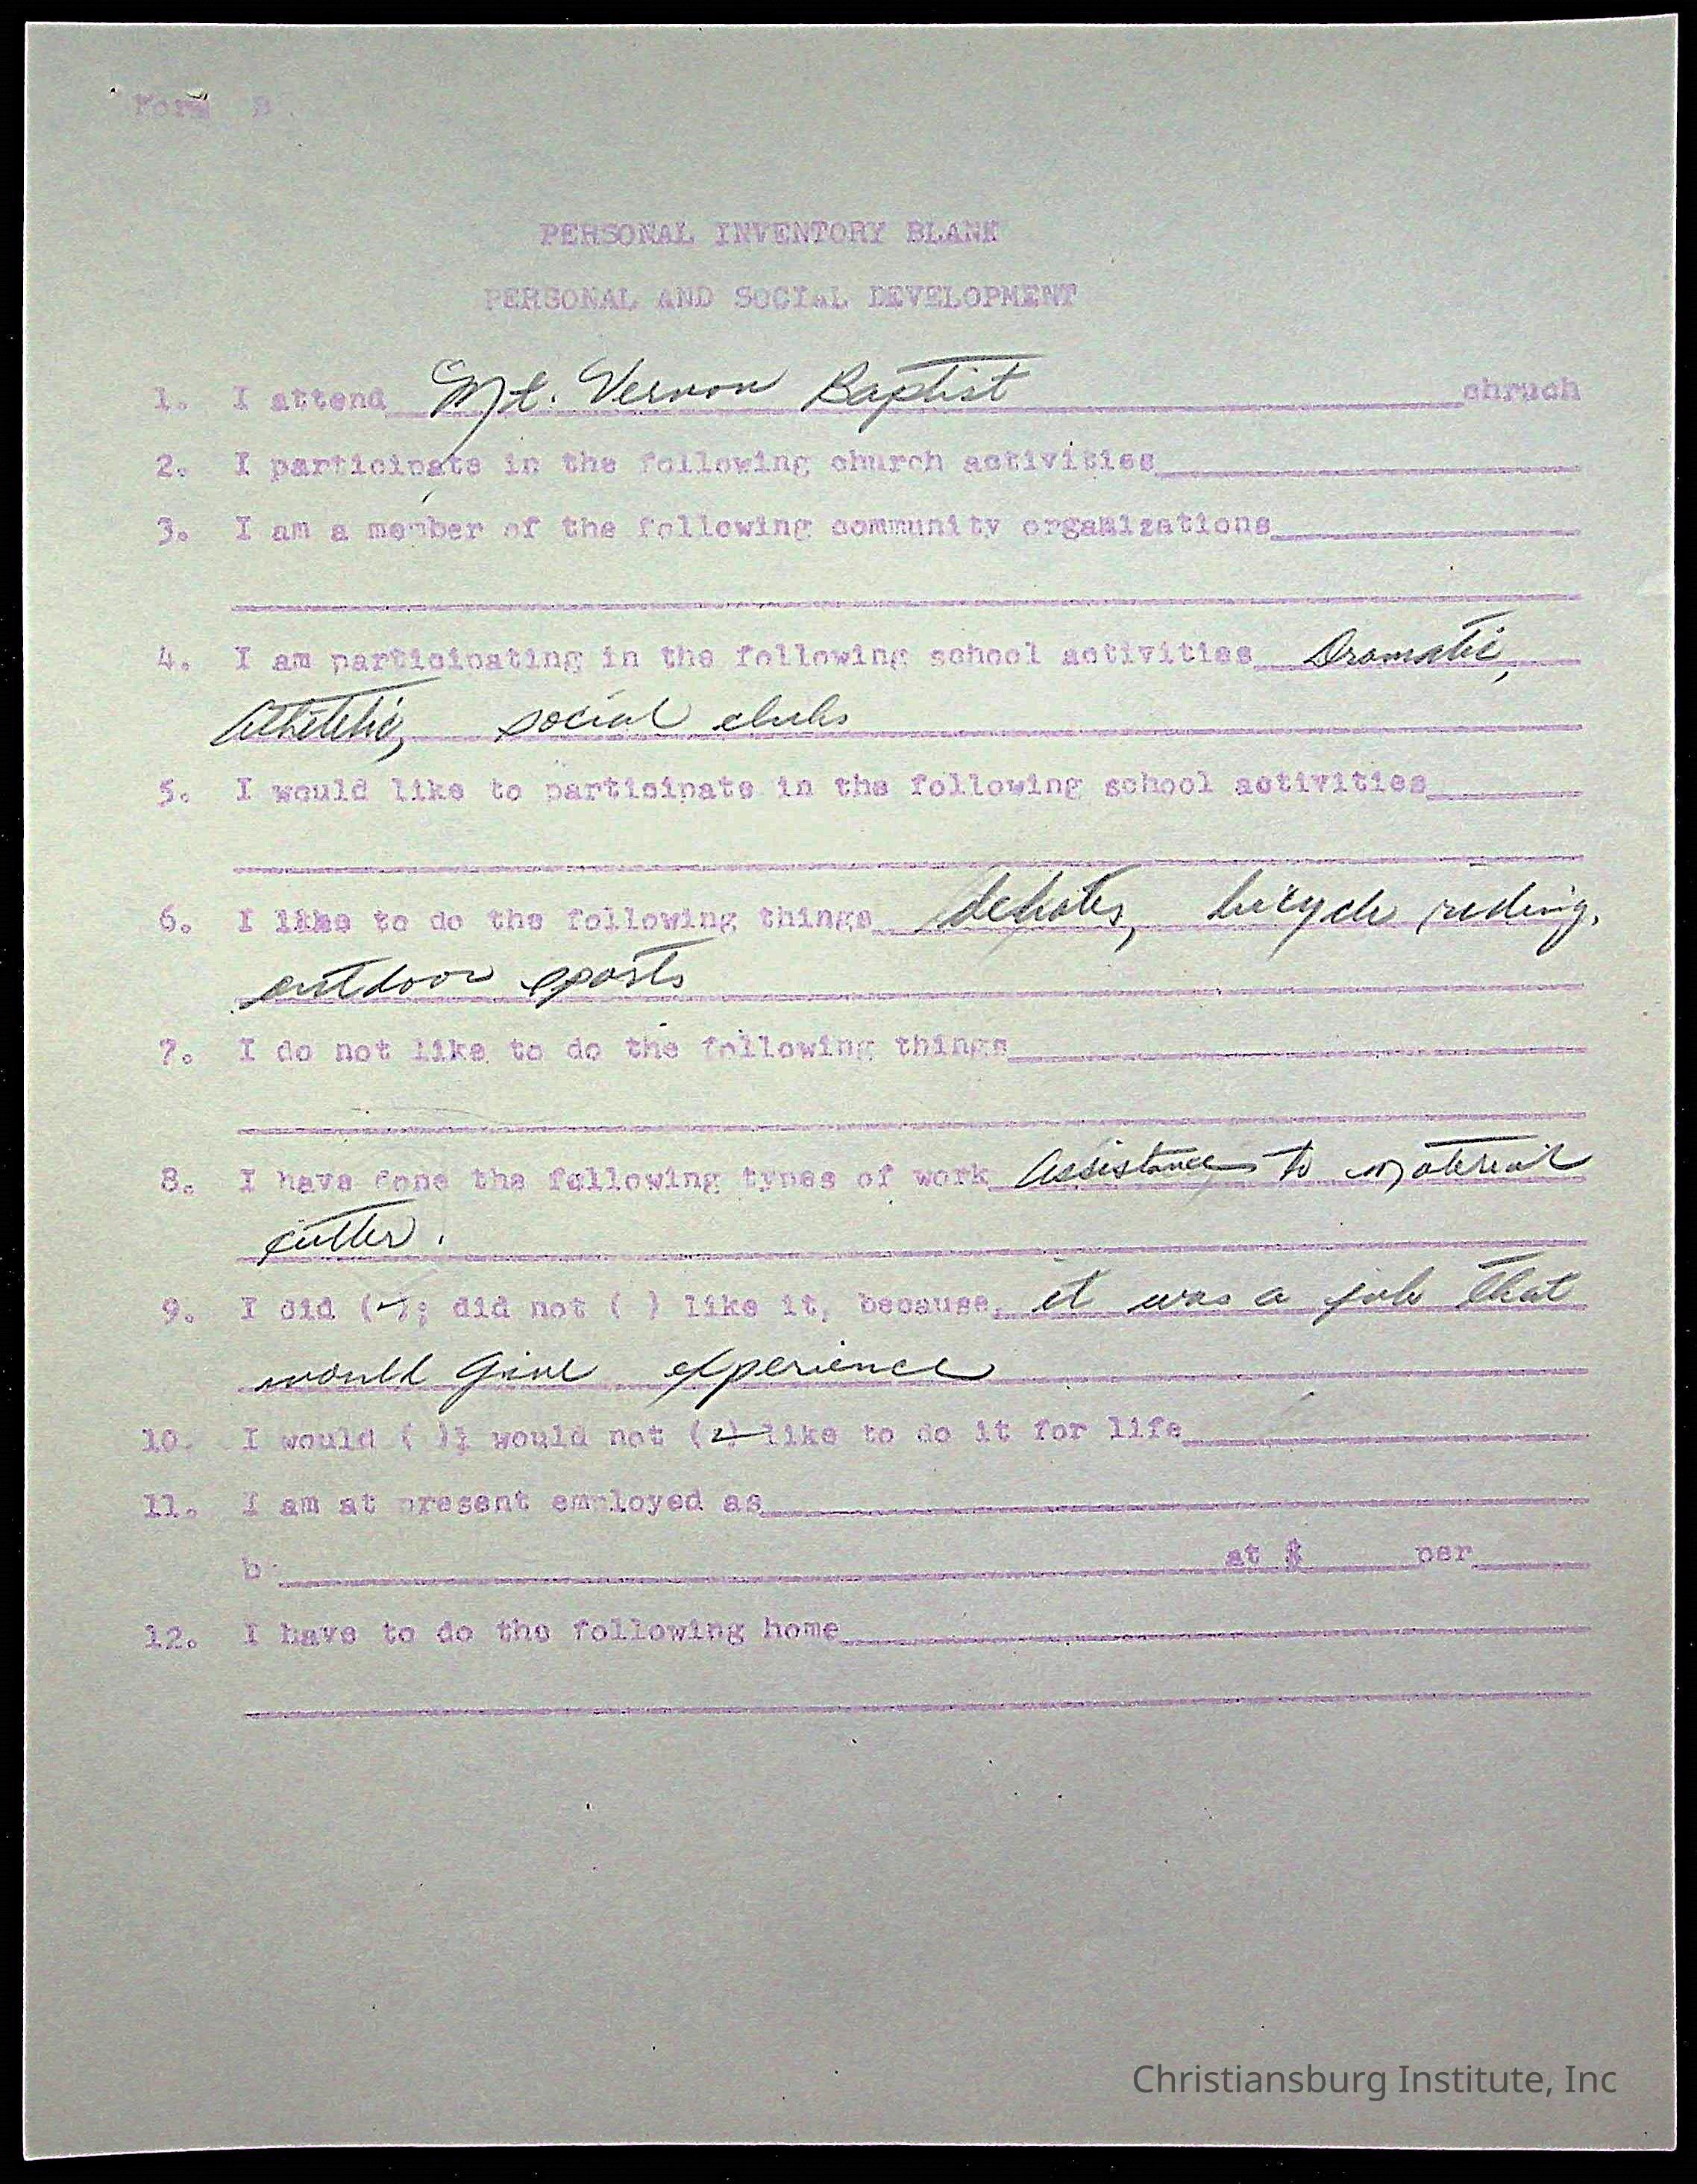 Form B.
PERSONAL INVENTORY BLANK
PERSONAL AND SOCIAL DEVELOPMENT
1. I attend Mt. Vernon Baptist chruch
2. I participate in the following church activities
3. I am a member of the following community organizations
4. I am participating in the following school activities Dramatic,
Athletic, social clubs
5. I would like to participate in the following school activities
6. I like to do the following things debates, bicycle riding,
outdoor sports
7. I do not like to do the following things
8. I have done the following types of work Assistance to material
cutter.
9. I did (✓); did not ( ) like it, because, it was a job that
would give experience
10. I would ( ); would not (✓) like to do it for life
11. I am at present employed as
b at $ per
12. I have to do the following home
Christiansburg Institute, Inc